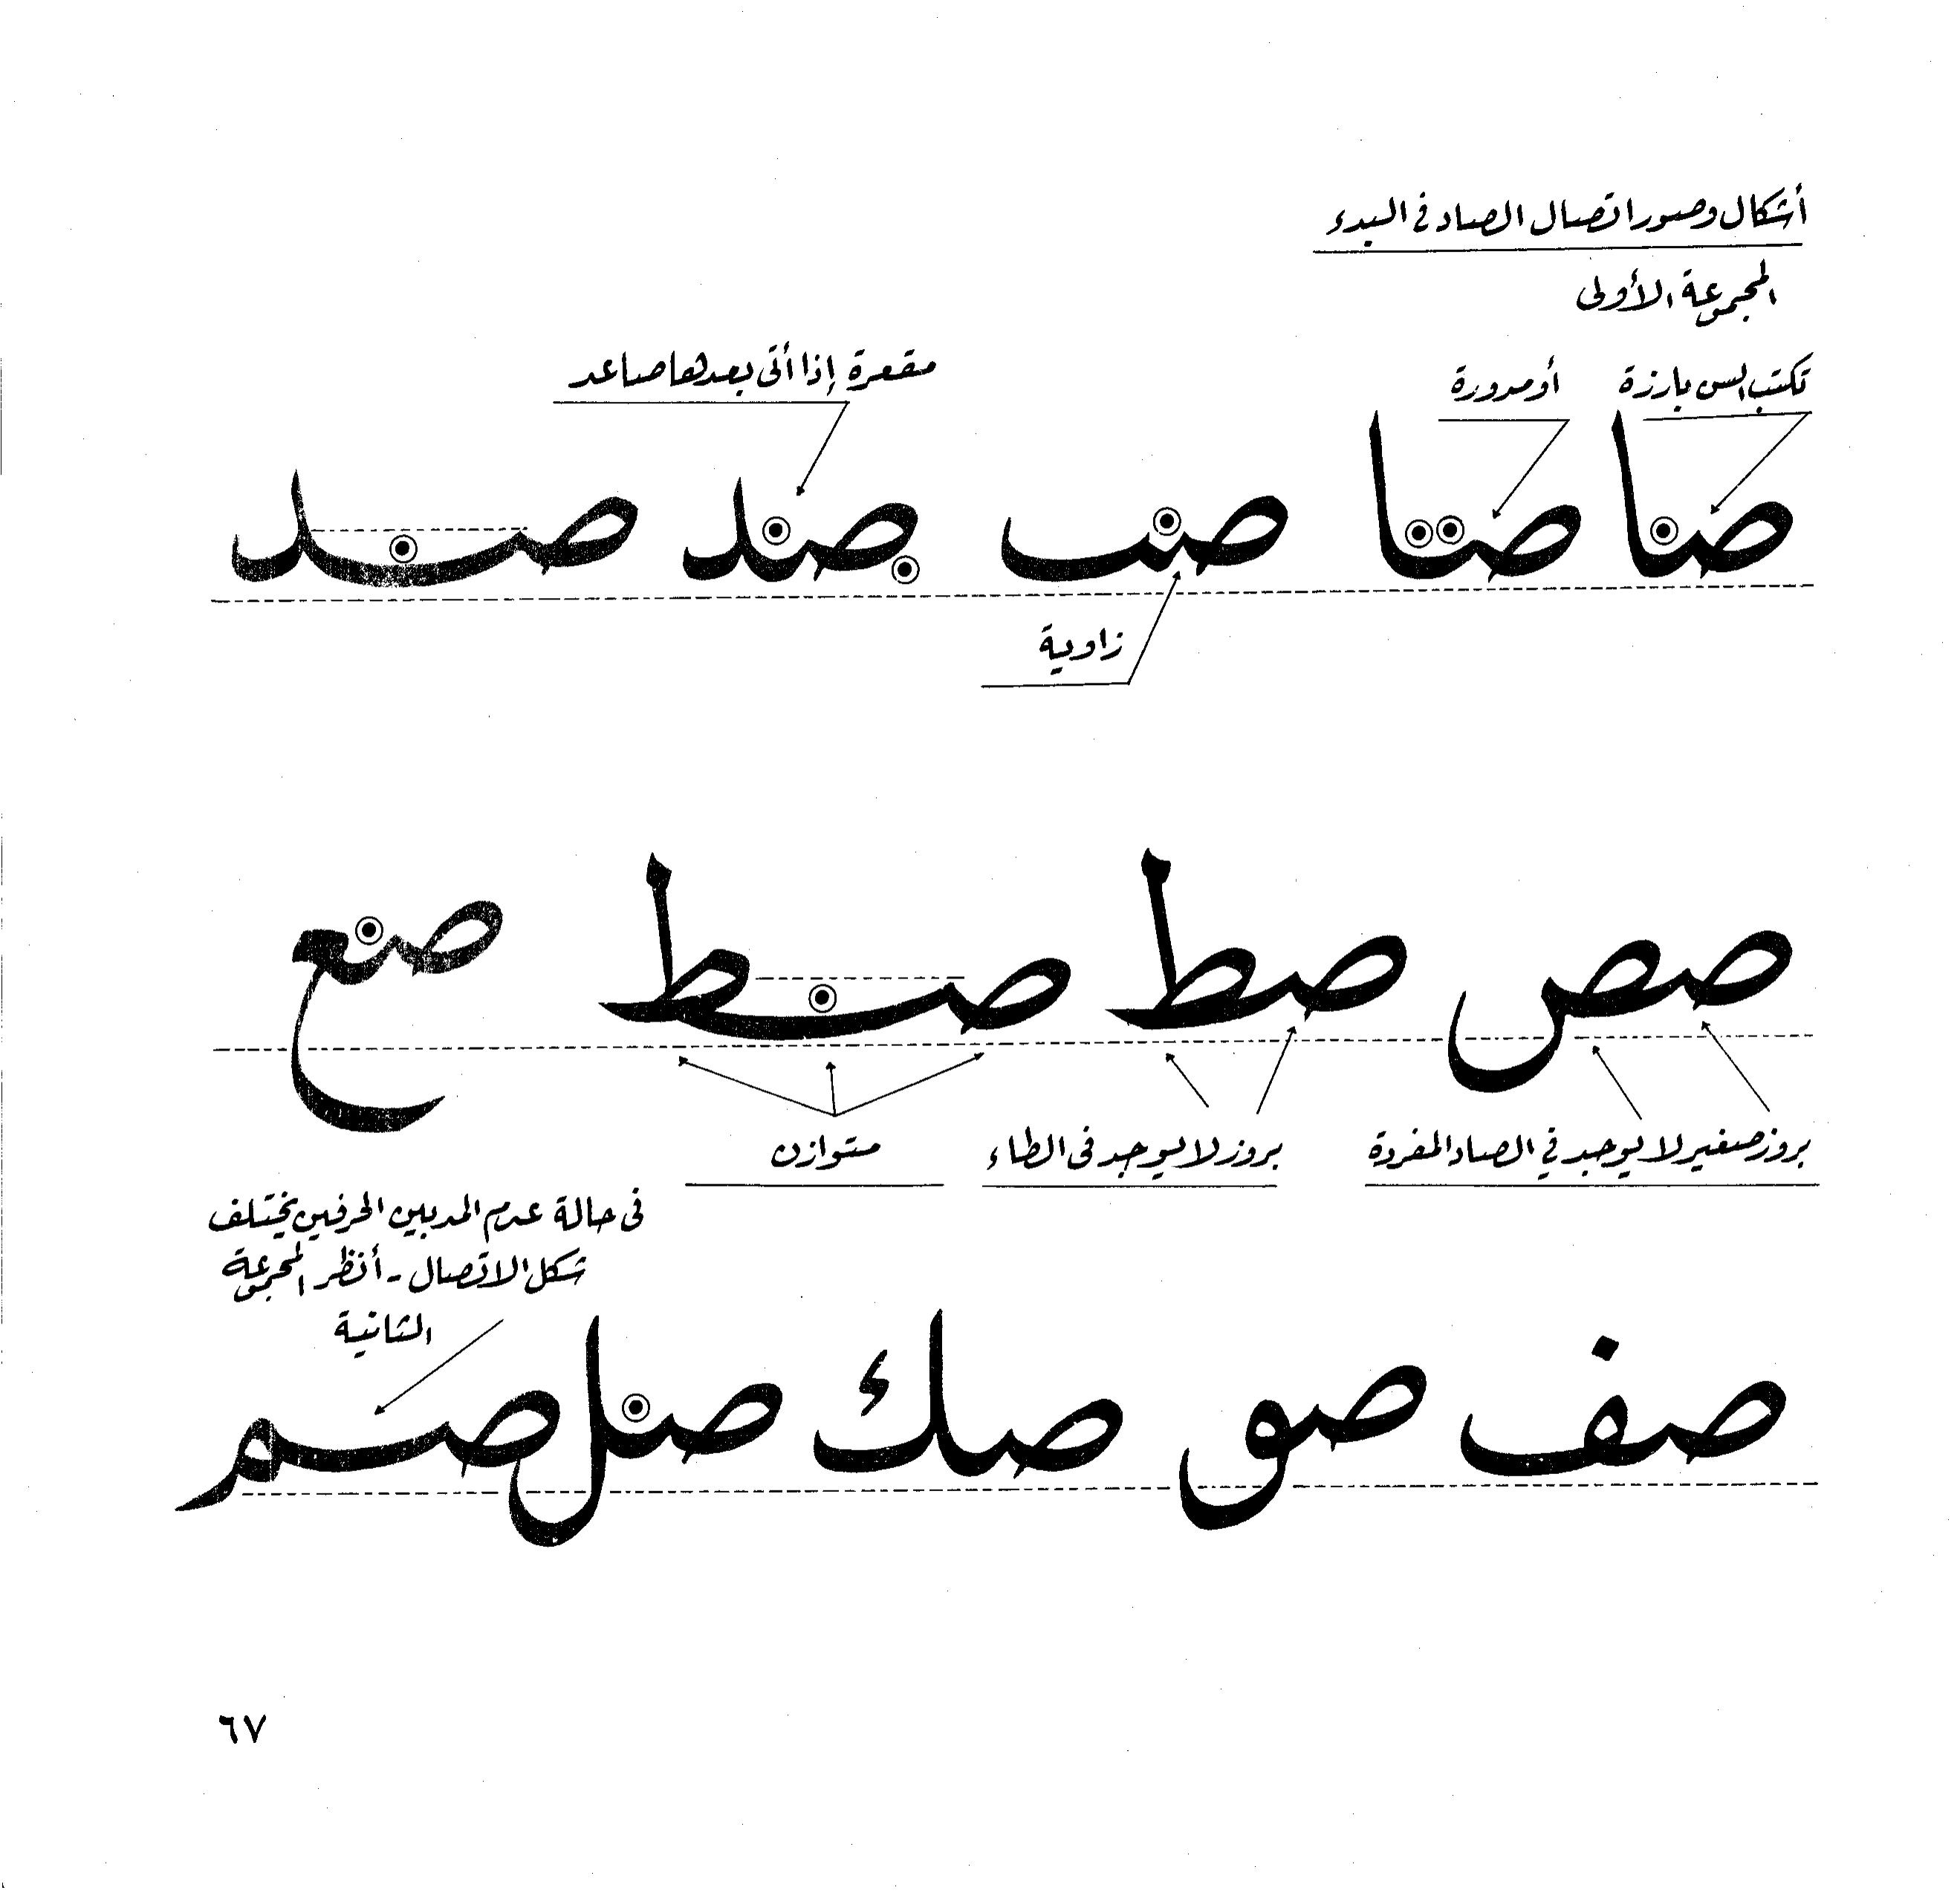 أشكال وصور اتصال الصاد في البدء
المجموعة الأولى
تكتب السن بارزة أو مدورة مقعرة إذا أتى بعدها صاعد
صا صا صب صد صد
زاوية
صص صط صط صع
بروز صغير لا يوجد في الصاد المفردة بروز لا يوجد في الطاء متوازن
في حالة عدم المد بين الحرفين يختلف
شكل الاتصال - أنظر المجموعة
الثانية
صف صو صك صل صم
٦٧